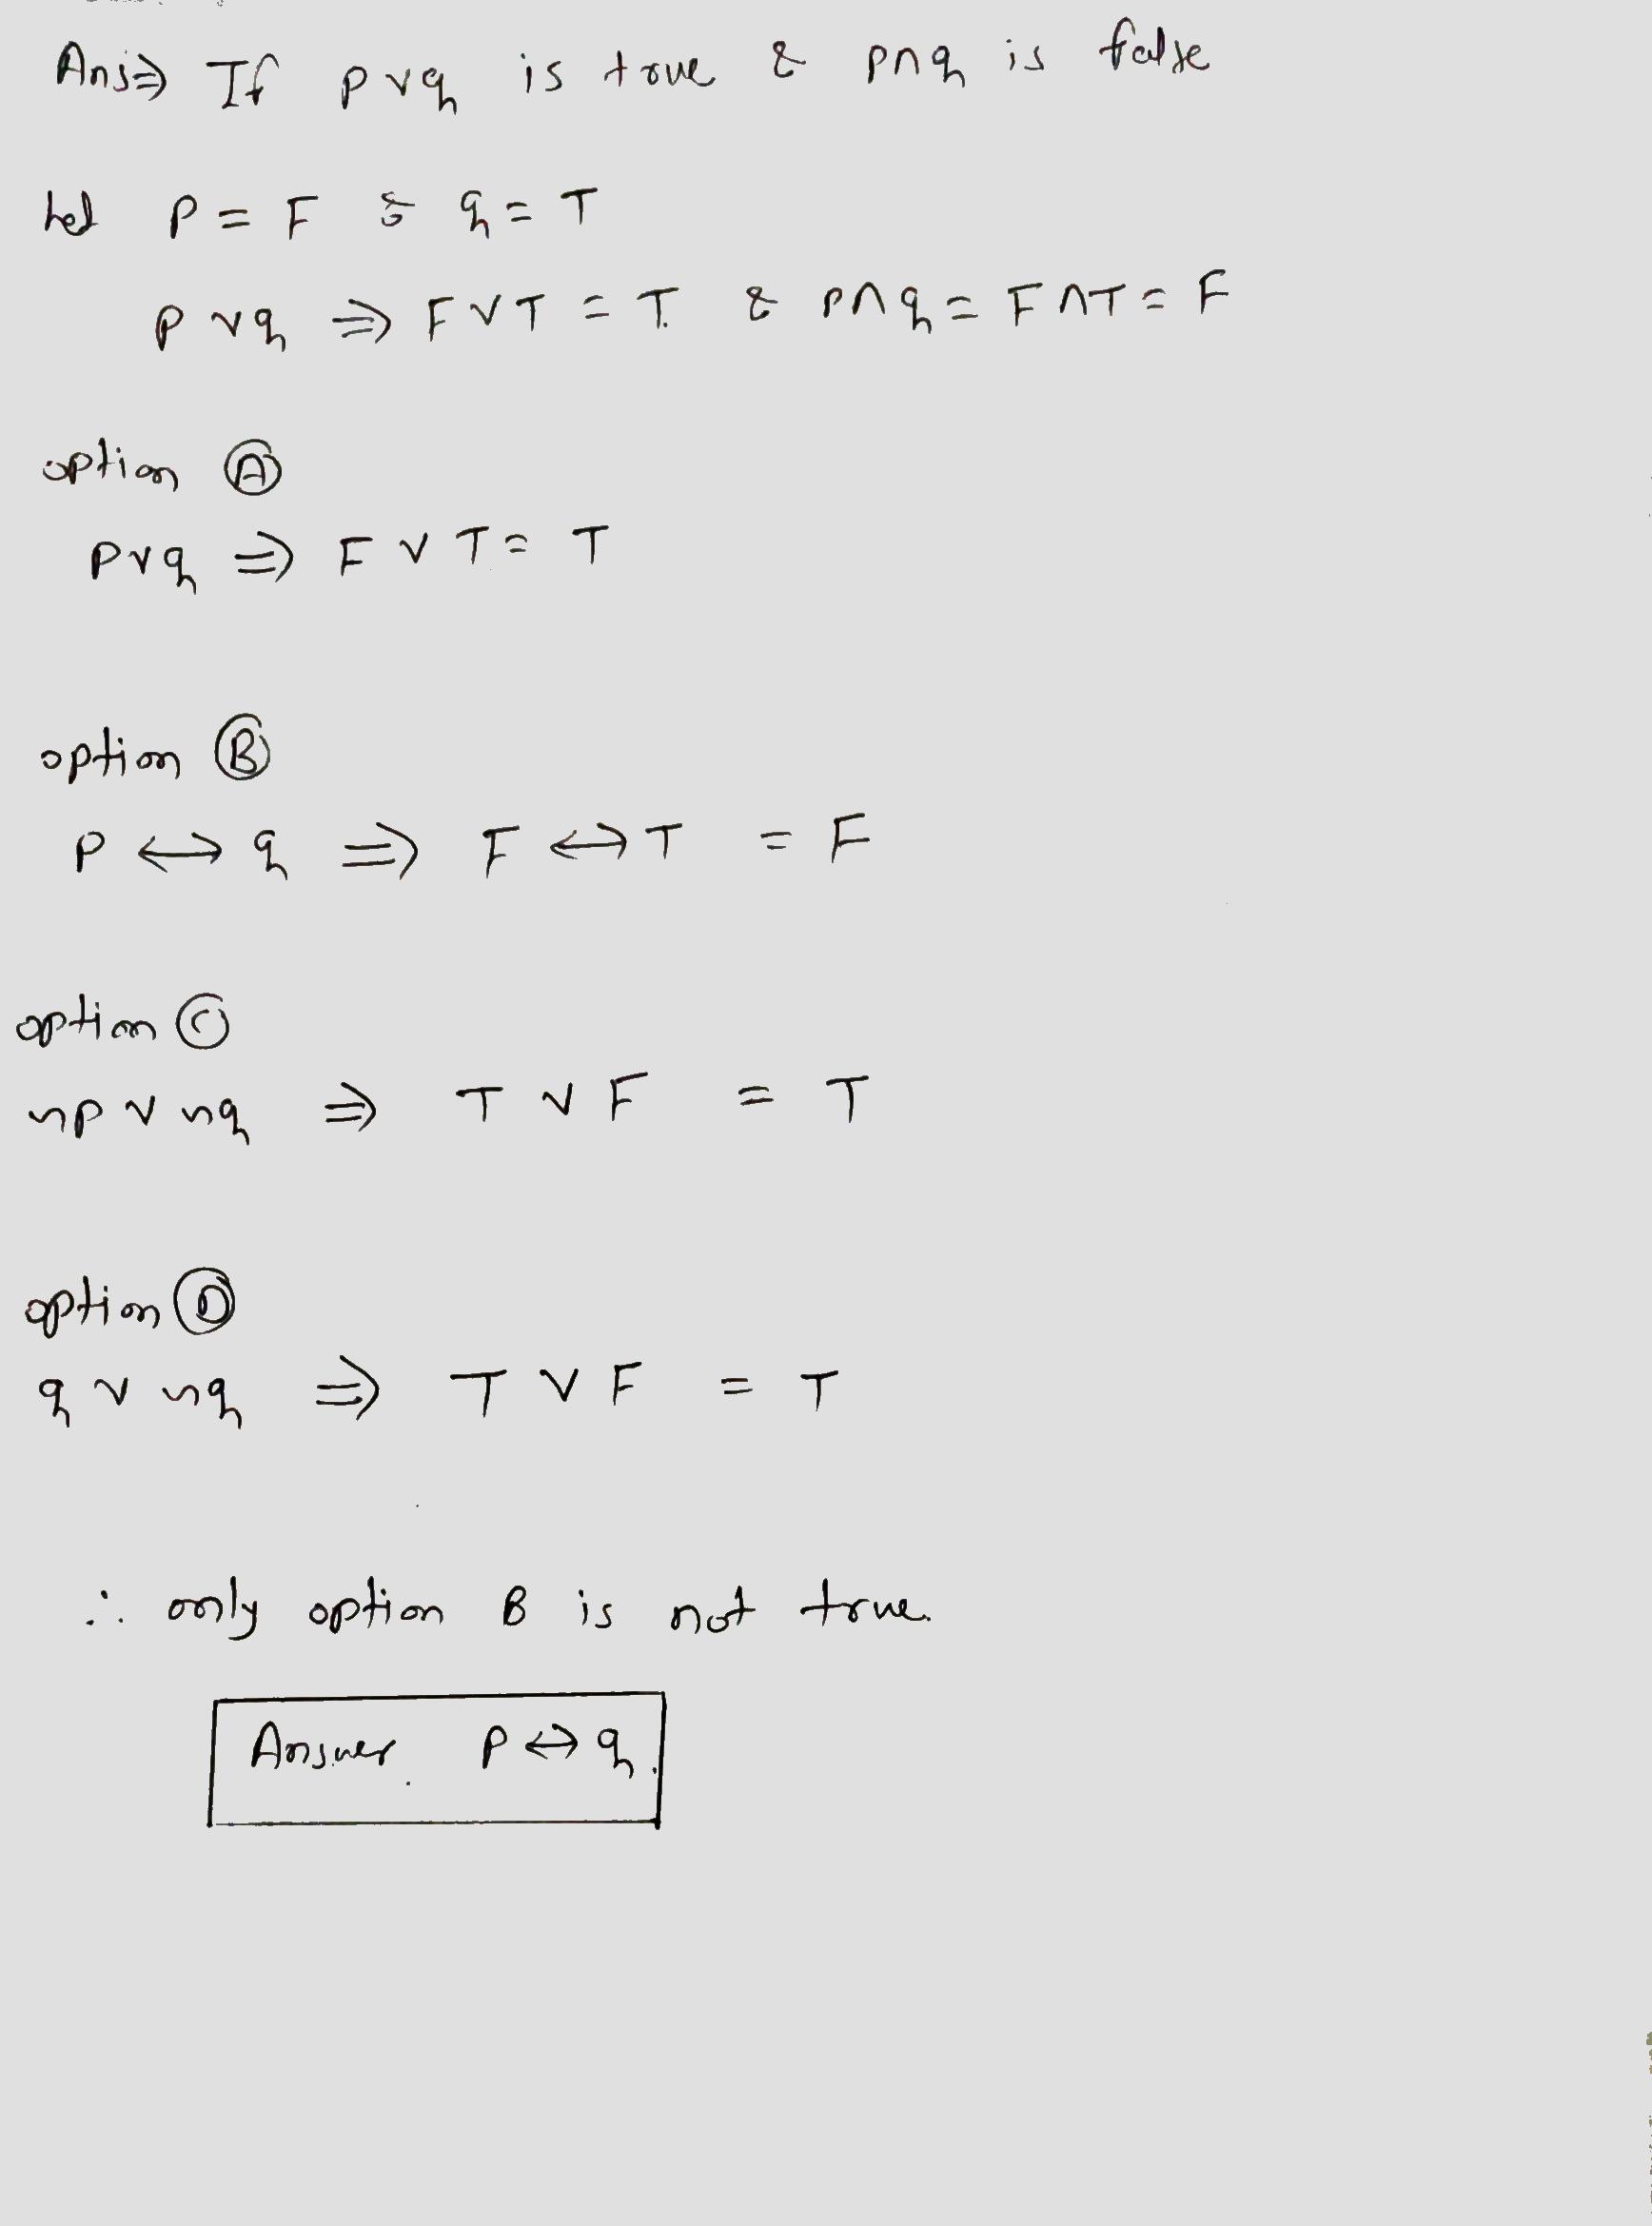 Ans⇒ If p∨q is true & p∧q is false
Let P = F & q = T
p∨q ⇒ F∨T = T. & p∧q = F∧T = F
option Ⓐ
p∨q ⇒ F∨T = T
option Ⓑ
P ↔ q ⇒ F ↔ T = F
option Ⓒ
~p ∨ ~q ⇒ T ∨ F = T
option Ⓓ
q ∨ ~q ⇒ T ∨ F = T
∴ only option B is not true.
Answer. P ↔ q.